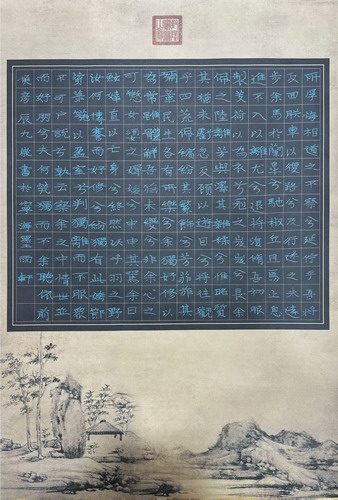 所厚悔相道之不察兮延佇乎吾將
反回朕車以復路兮及行迷之未遠
步余馬於蘭皋兮馳椒丘且焉止息
進不入以離尤兮退將復修吾初服
製芰荷以為衣兮之岌岌兮長余
佩之陸離芳與澤其雜糅兮唯昭質
其猶未虧忽反顧以遊目兮將往觀
乎四荒佩繽紛其繁飾兮芳菲菲其
彌章民生各有所樂兮余獨好修以
為常雖體解吾猶未變兮豈余心之
可懲女嬃之嬋媛兮申申其詈余曰
鯀婞直以亡身兮終然殀乎羽之野
汝何博謇而好修兮紛獨有此姱節
薋菉葹以盈室兮判獨離而不服眾
不可戶說兮孰云察余之中情世並
而好朋兮夫何煢獨而不余聽依前
辰九歲書於寧海墨雨軒